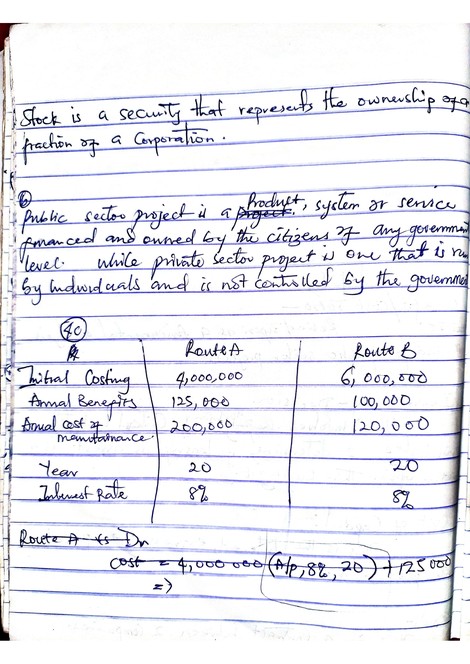 Stock is a security that represents the ownership of a
fraction of a Corporation.
⑥
Public sector project is a project Product, system or service
financed and owned by the citizens of any government
level. while private sector project is one that is run
by individuals and is not controlled by the government
4c
Route A Route B
Initial Costing 4,000,000 6,000,000
Annual Benefits 125,000 100,000
Annual cost of 200,000 120,000
maintainance
Year 20 20
Interest Rate 8% 8%
Route A vs Dn
Cost = 4,000 000 (A/p, 8%, 20) + 125 000
=>